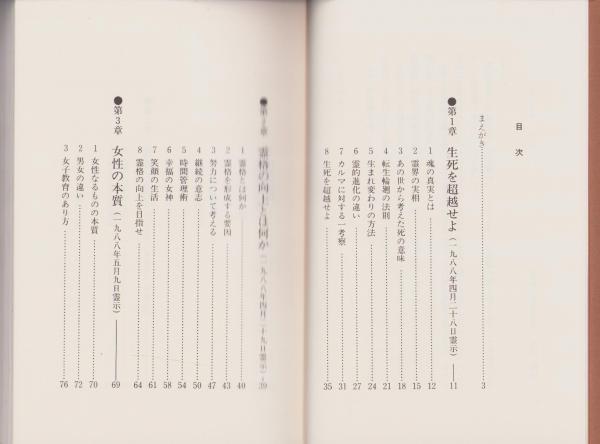 目次
まえがき……3
●第1章 生死を超越せよ(一九八八年四月二十八日霊示)——11
1 魂の真実とは……12
2 霊界の実相……15
3 あの世から考えた死の意味……18
4 転生輪廻の法則……21
5 生まれ変わりの方法……24
6 霊的進化の違い……27
7 カルマに対する一考察……31
8 生死を超越せよ……35
●第2章 霊格の向上とは何か(一九八八年四月二十九日霊示)—39
1 霊格とは何か……40
2 霊格を形成する要因……43
3 努力について考える……47
4 継続の意志……50
5 時間管理術……54
6 幸福の女神……58
7 笑顔の生活……61
8 霊格の向上を目指せ……64
●第3章 女性の本質(一九八八年五月九日霊示)——69
1 女性なるものの本質……70
2 男女の違い……72
3 女子教育のあり方……76